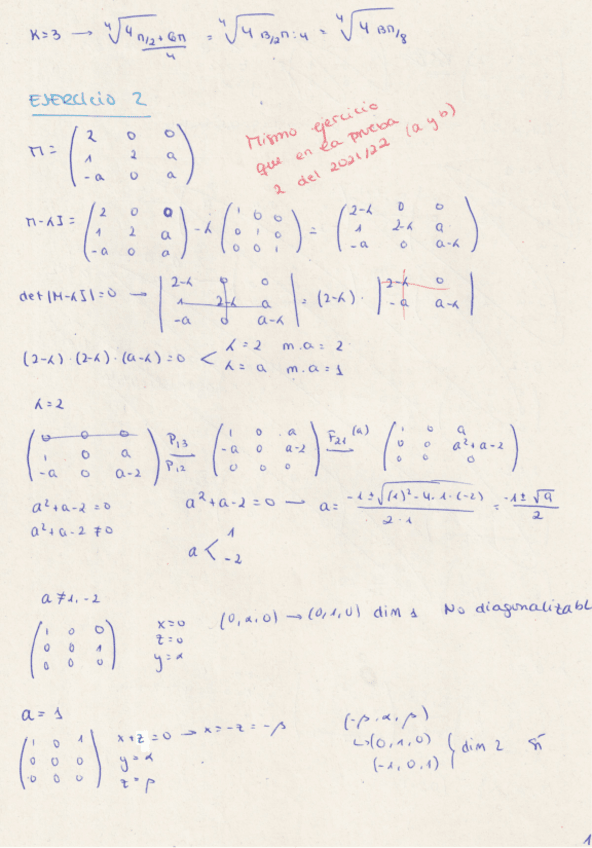 K=3 → ⁴√4 π/2+6π/4 = ⁴√4 13/2π:4 = ⁴√4 13π/8
EJERCICIO 2
Mismo ejercicio
que en la prueba
2 del 2021/22 (a y b)
M = (2 0 0
1 2 a
-a 0 a)
M-λI = (2 0 0 / 1 2 a / -a 0 a) - λ (1 0 0 / 0 1 0 / 0 0 1) = (2-λ 0 0 / 1 2-λ a / -a 0 a-λ)
det |M-λI| = 0 → |2-λ 0 0 / 1 2-λ a / -a 0 a-λ| = (2-λ) · |2-λ 0 / -a a-λ|
(2-λ)·(2-λ)·(a-λ)=0 < λ=2 m.a=2
λ=a m.a=1
λ=2
(0 0 0 / 1 0 a / -a 0 a-2) P13 P12 → (1 0 a / -a 0 a-2 / 0 0 0) F21 (a) → (1 0 a / 0 0 a²+a-2 / 0 0 0)
a²+a-2=0
a²+a-2≠0
a²+a-2=0 → a = -1±√(1)²-4·1·(-2) / 2·1 = -1±√9 / 2
a < 1
-2
a≠1,-2
(1 0 0 / 0 0 1 / 0 0 0)
x=0
z=0
y=α
(0,α,0) → (0,1,0) dim 1 No diagonalizabl
a = 1
(1 0 1 / 0 0 0 / 0 0 0)
x+z=0 → x=-z=-β
y=α
z=β
(-β,α,β)
↳(0,1,0)
(-1,0,1) } dim 2 sí
1